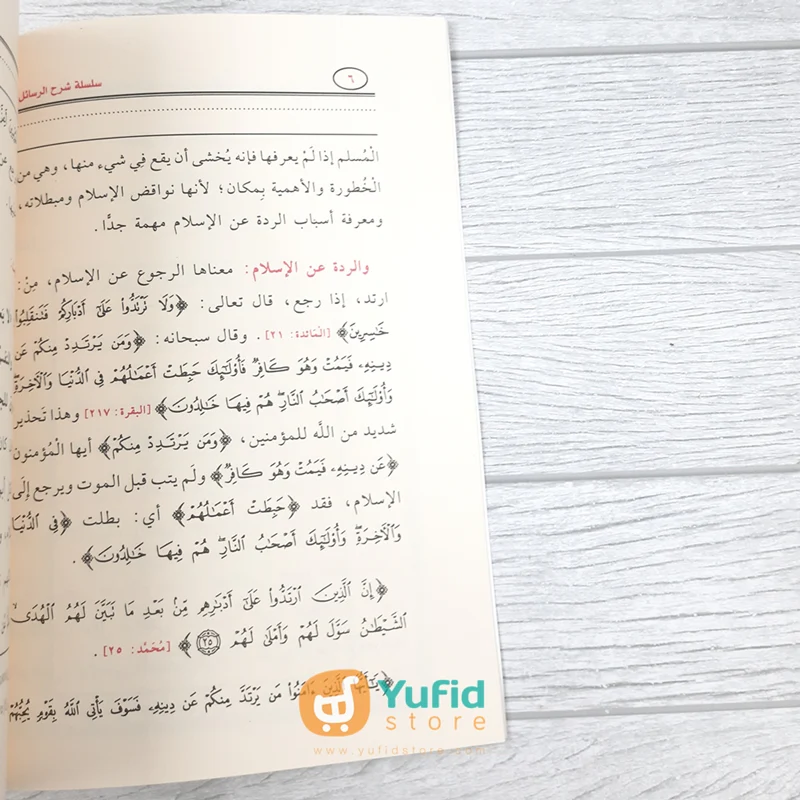 ٦
سلسلة شرح الرسائل
الْمُسلم إذا لَمْ يعرفها فإنه يُخشى أن يقع فِي شيء منها، وهي من
الْخُطورة والأهمية بِمكان؛ لأنها نواقض الإسلام ومبطلاته،
ومعرفة أسباب الردة عن الإسلام مهمة جدًّا.
والردة عن الإسلام: معناها الرجوع عن الإسلام، مِنْ:
ارتد، إذا رجع، قال تعالى: ﴿وَلَا تَرْتَدُّوا۟ عَلَىٰٓ أَدْبَارِكُمْ فَتَنقَلِبُوا۟
خَـٰسِرِينَ﴾ [الْمَائدة: ٢١]. وقال سبحانه: ﴿وَمَن يَرْتَدِدْ مِنكُمْ عَن
دِينِهِۦ فَيَمُتْ وَهُوَ كَافِرٌ فَأُو۟لَـٰٓئِكَ حَبِطَتْ أَعْمَـٰلُهُمْ فِى ٱلدُّنْيَا وَٱلْـَٔاخِرَةِ ۖ
وَأُو۟لَـٰٓئِكَ أَصْحَـٰبُ ٱلنَّارِ ۖ هُمْ فِيهَا خَـٰلِدُونَ﴾ [البقرة: ٢١٧] وهذا تَحذير
شديد من اللَّه للمؤمنين، ﴿وَمَن يَرْتَدِدْ مِنكُمْ﴾ أيها الْمُؤمنون
﴿عَن دِينِهِۦ فَيَمُتْ وَهُوَ كَافِرٌ﴾ ولَم يتب قبل الموت ويرجع إلَى
الإسلام، فقد ﴿حَبِطَتْ أَعْمَـٰلُهُمْ﴾ أي: بطلت ﴿فِى ٱلدُّنْيَا
وَٱلْـَٔاخِرَةِ ۖ وَأُو۟لَـٰٓئِكَ أَصْحَـٰبُ ٱلنَّارِ ۖ هُمْ فِيهَا خَـٰلِدُونَ﴾.
﴿إِنَّ ٱلَّذِينَ ٱرْتَدُّوا۟ عَلَىٰٓ أَدْبَـٰرِهِم مِّنۢ بَعْدِ مَا تَبَيَّنَ لَهُمُ ٱلْهُدَى ۙ
ٱلشَّيْطَـٰنُ سَوَّلَ لَهُمْ وَأَمْلَىٰ لَهُمْ ٢٥﴾ [مُحَمَّد: ٢٥].
﴿يَـٰٓأَيُّهَا ٱلَّذِينَ ءَامَنُوا۟ مَن يَرْتَدَّ مِنكُمْ عَن دِينِهِۦ فَسَوْفَ يَأْتِى ٱللَّهُ بِقَوْمٍ يُحِبُّهُمْ
Yufid
store
www.yufidstore.com